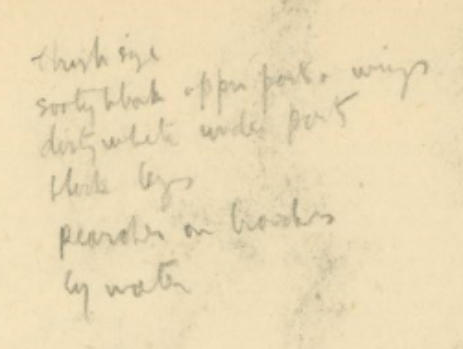 thrush size
sooty black upper parts & wings
dirty white under parts
black legs
pearches on branches
by water